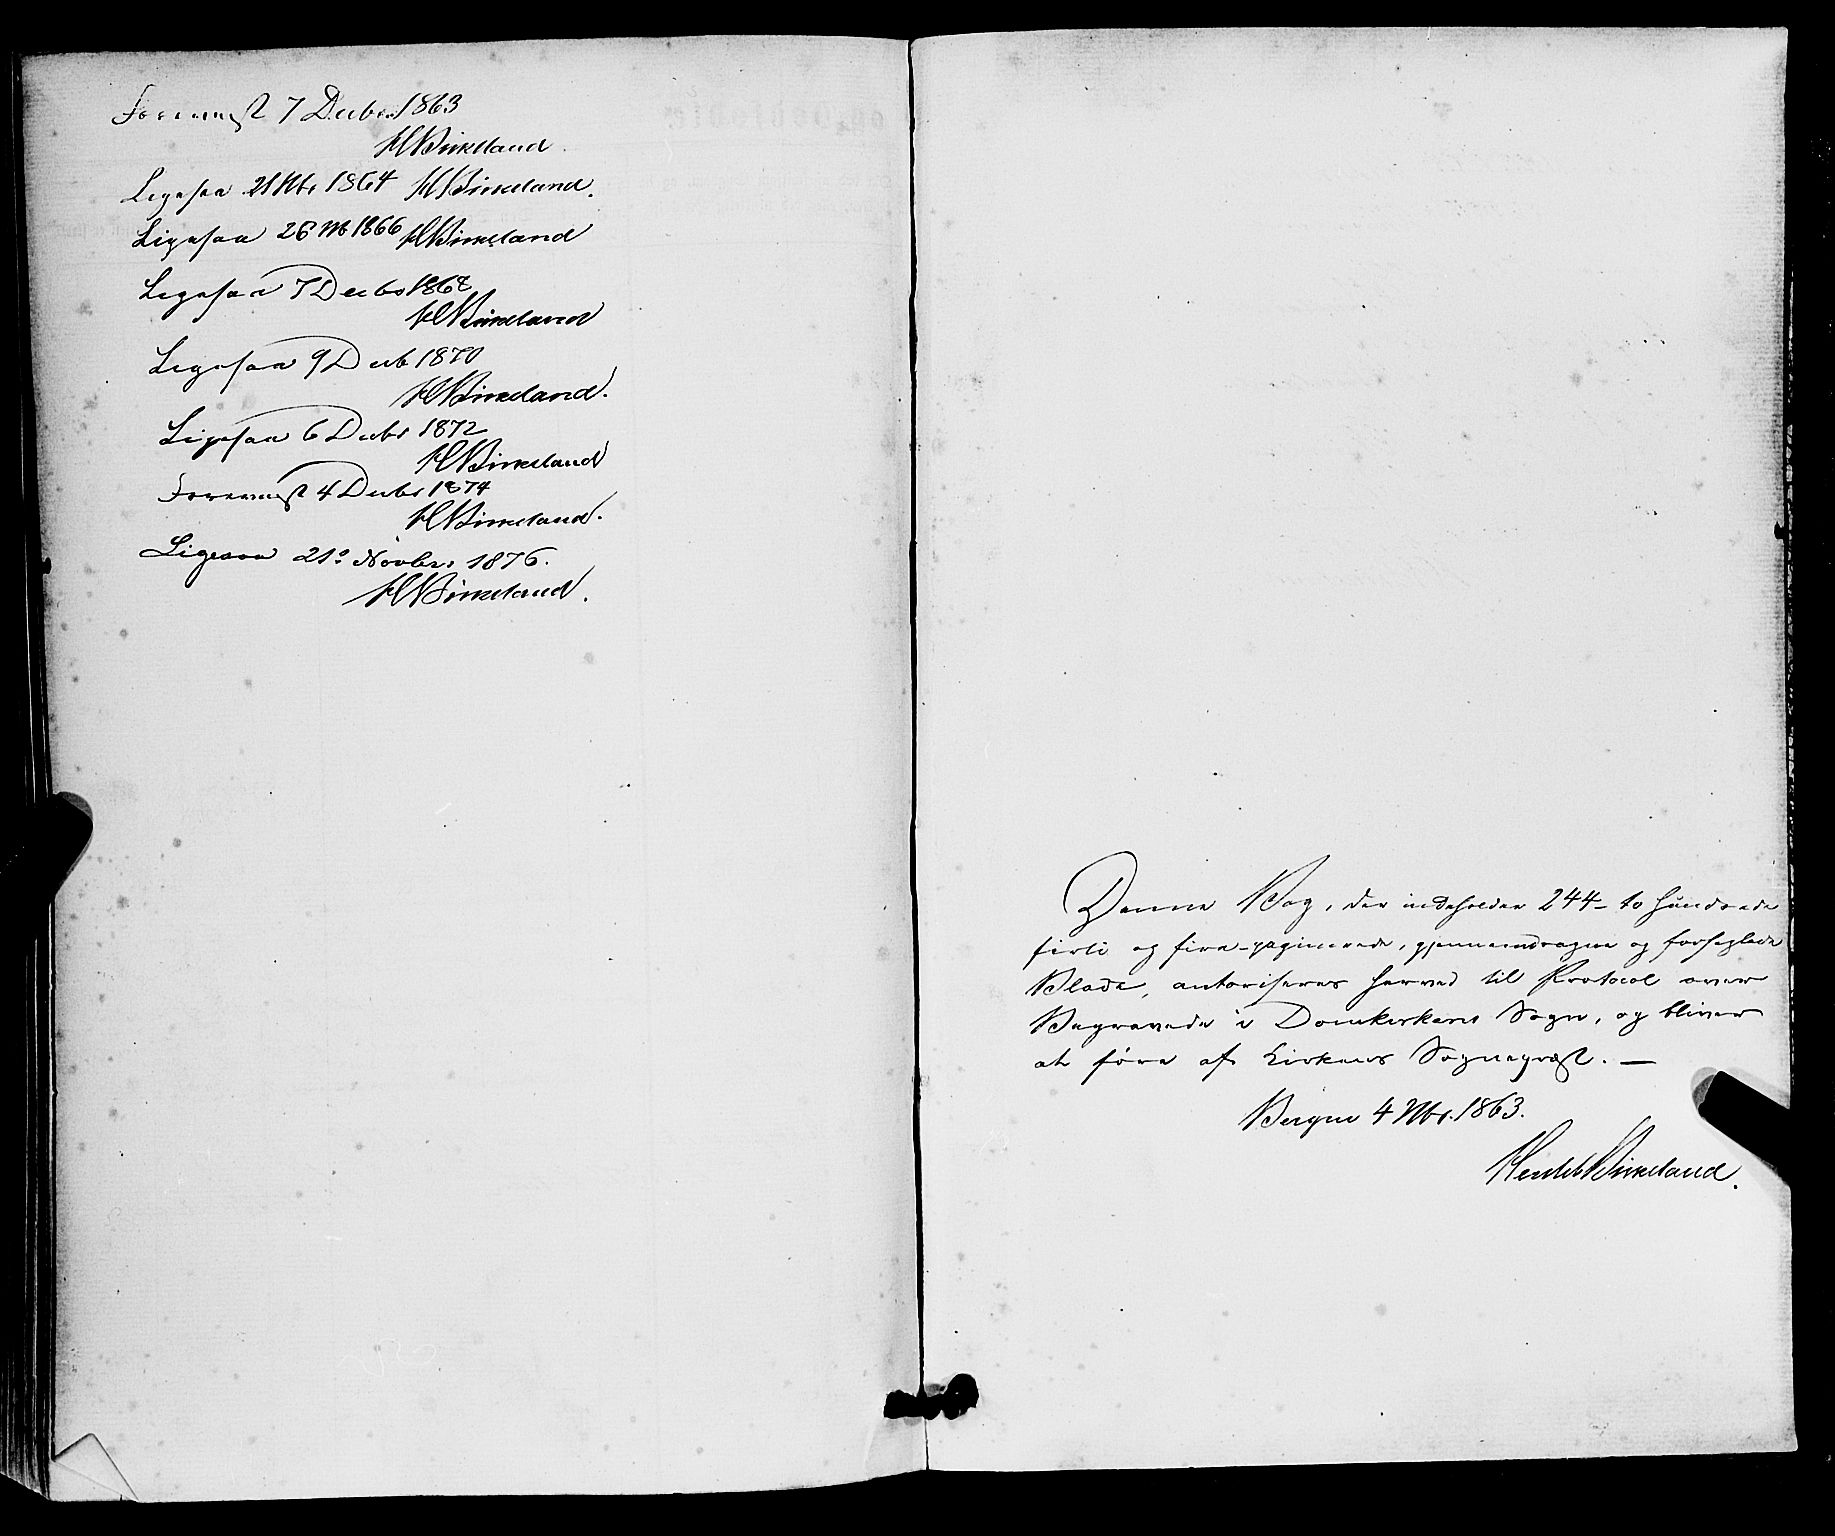 Foreviist 7 Decbr. 1863
HBirkeland.
Ligesaa 21 Nbr 1864 HBirkeland.
Ligesaa 26 Nb 1866 HBirkeland
Ligesaa 7 Decbr 1868
HBirkeland
Ligesaa 9 Decb 1870
HBirkeland.
Ligesaa 6 Decbr 1872
HBirkeland
Foreviist 4 Decbr 1874
HBirkeland.
Ligesaa 21º Novbr. 1876.
HBirkeland.
Denne Bog, der indeholder 244 - to hundrede
firti og fire - paginerede, gjennemdragne og forseglede
Blade, autoriseres herved til Protocol over
Begravede i Domkirkens Sogn, og bliver
at føre af Kirkens Sognepræst. —
Bergen 4 Nbr. 1863.
Birkeland.